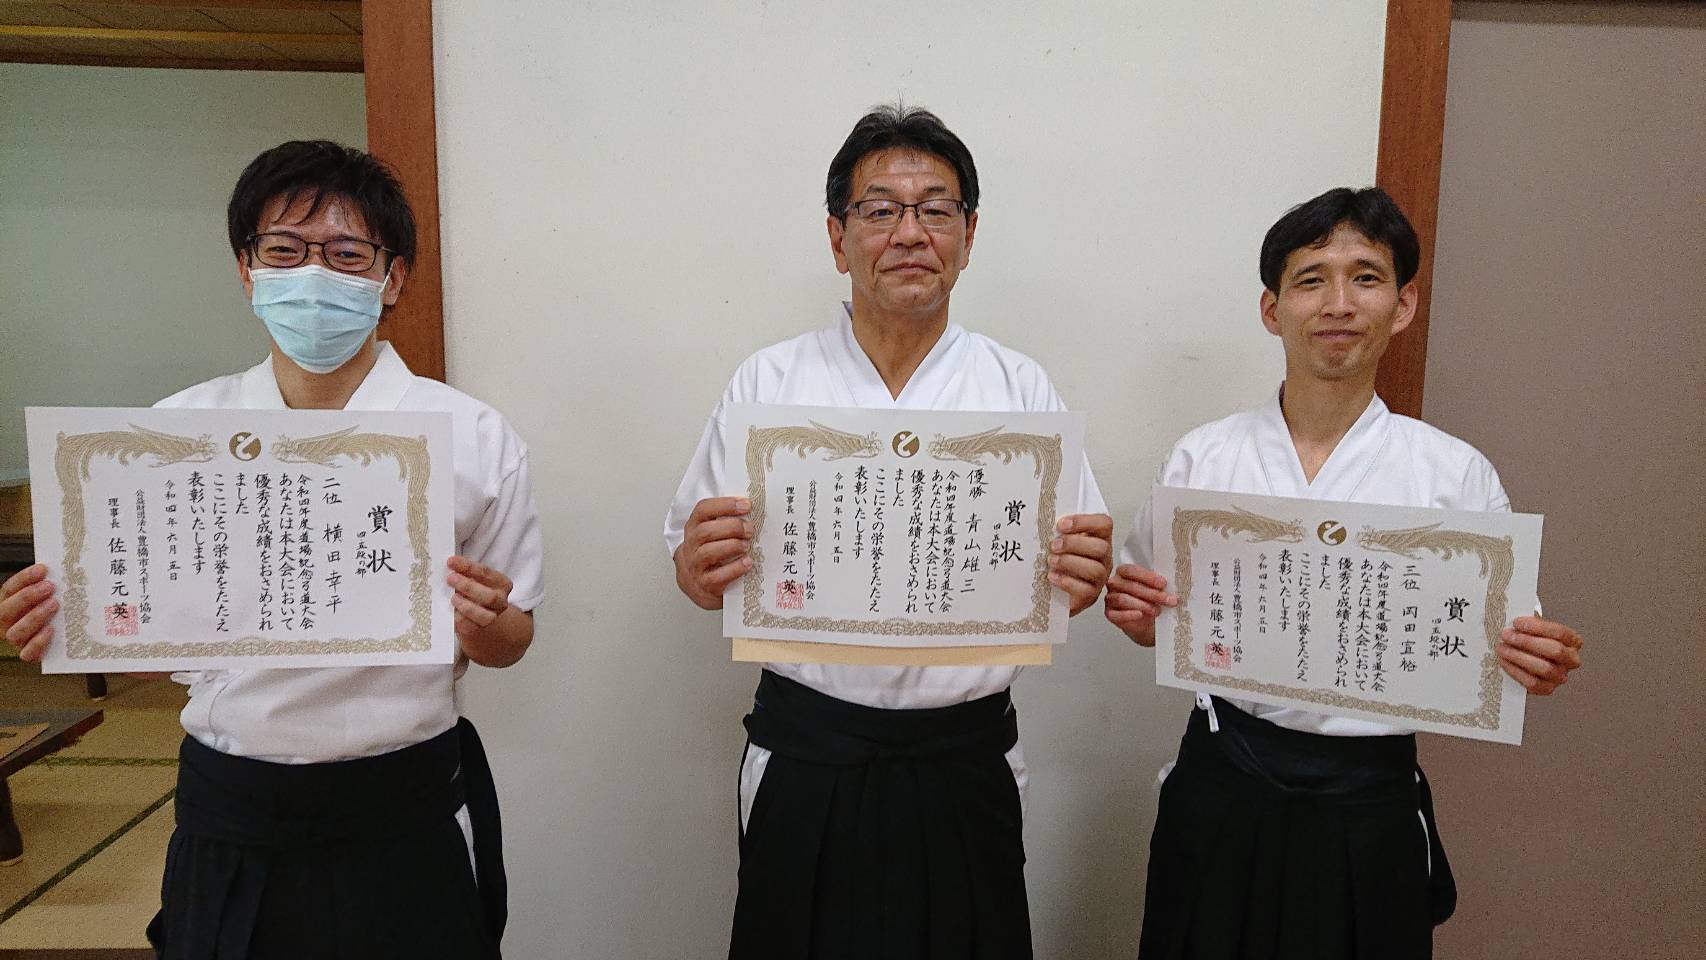 賞状
四五段の部
二位 横田幸平
令和四年度道場記念弓道大会
あなたは本大会において
優秀な成績をおさめられ
ました
ここにその栄誉をたたえ
表彰いたします
令和四年六月五日
公益財団法人豊橋市スポーツ協会
理事長 佐藤元英
賞状
四五段の部
優勝 青山雄三
令和四年度道場記念弓道大会
あなたは本大会において
優秀な成績をおさめられ
ました
ここにその栄誉をたたえ
表彰いたします
令和四年六月五日
公益財団法人豊橋市スポーツ協会
理事長 佐藤元英
賞状
四五段の部
三位 岡田宣裕
令和四年度道場記念弓道大会
あなたは本大会において
優秀な成績をおさめられ
ました
ここにその栄誉をたたえ
表彰いたします
令和四年六月五日
公益財団法人豊橋市スポーツ協会
理事長 佐藤元英